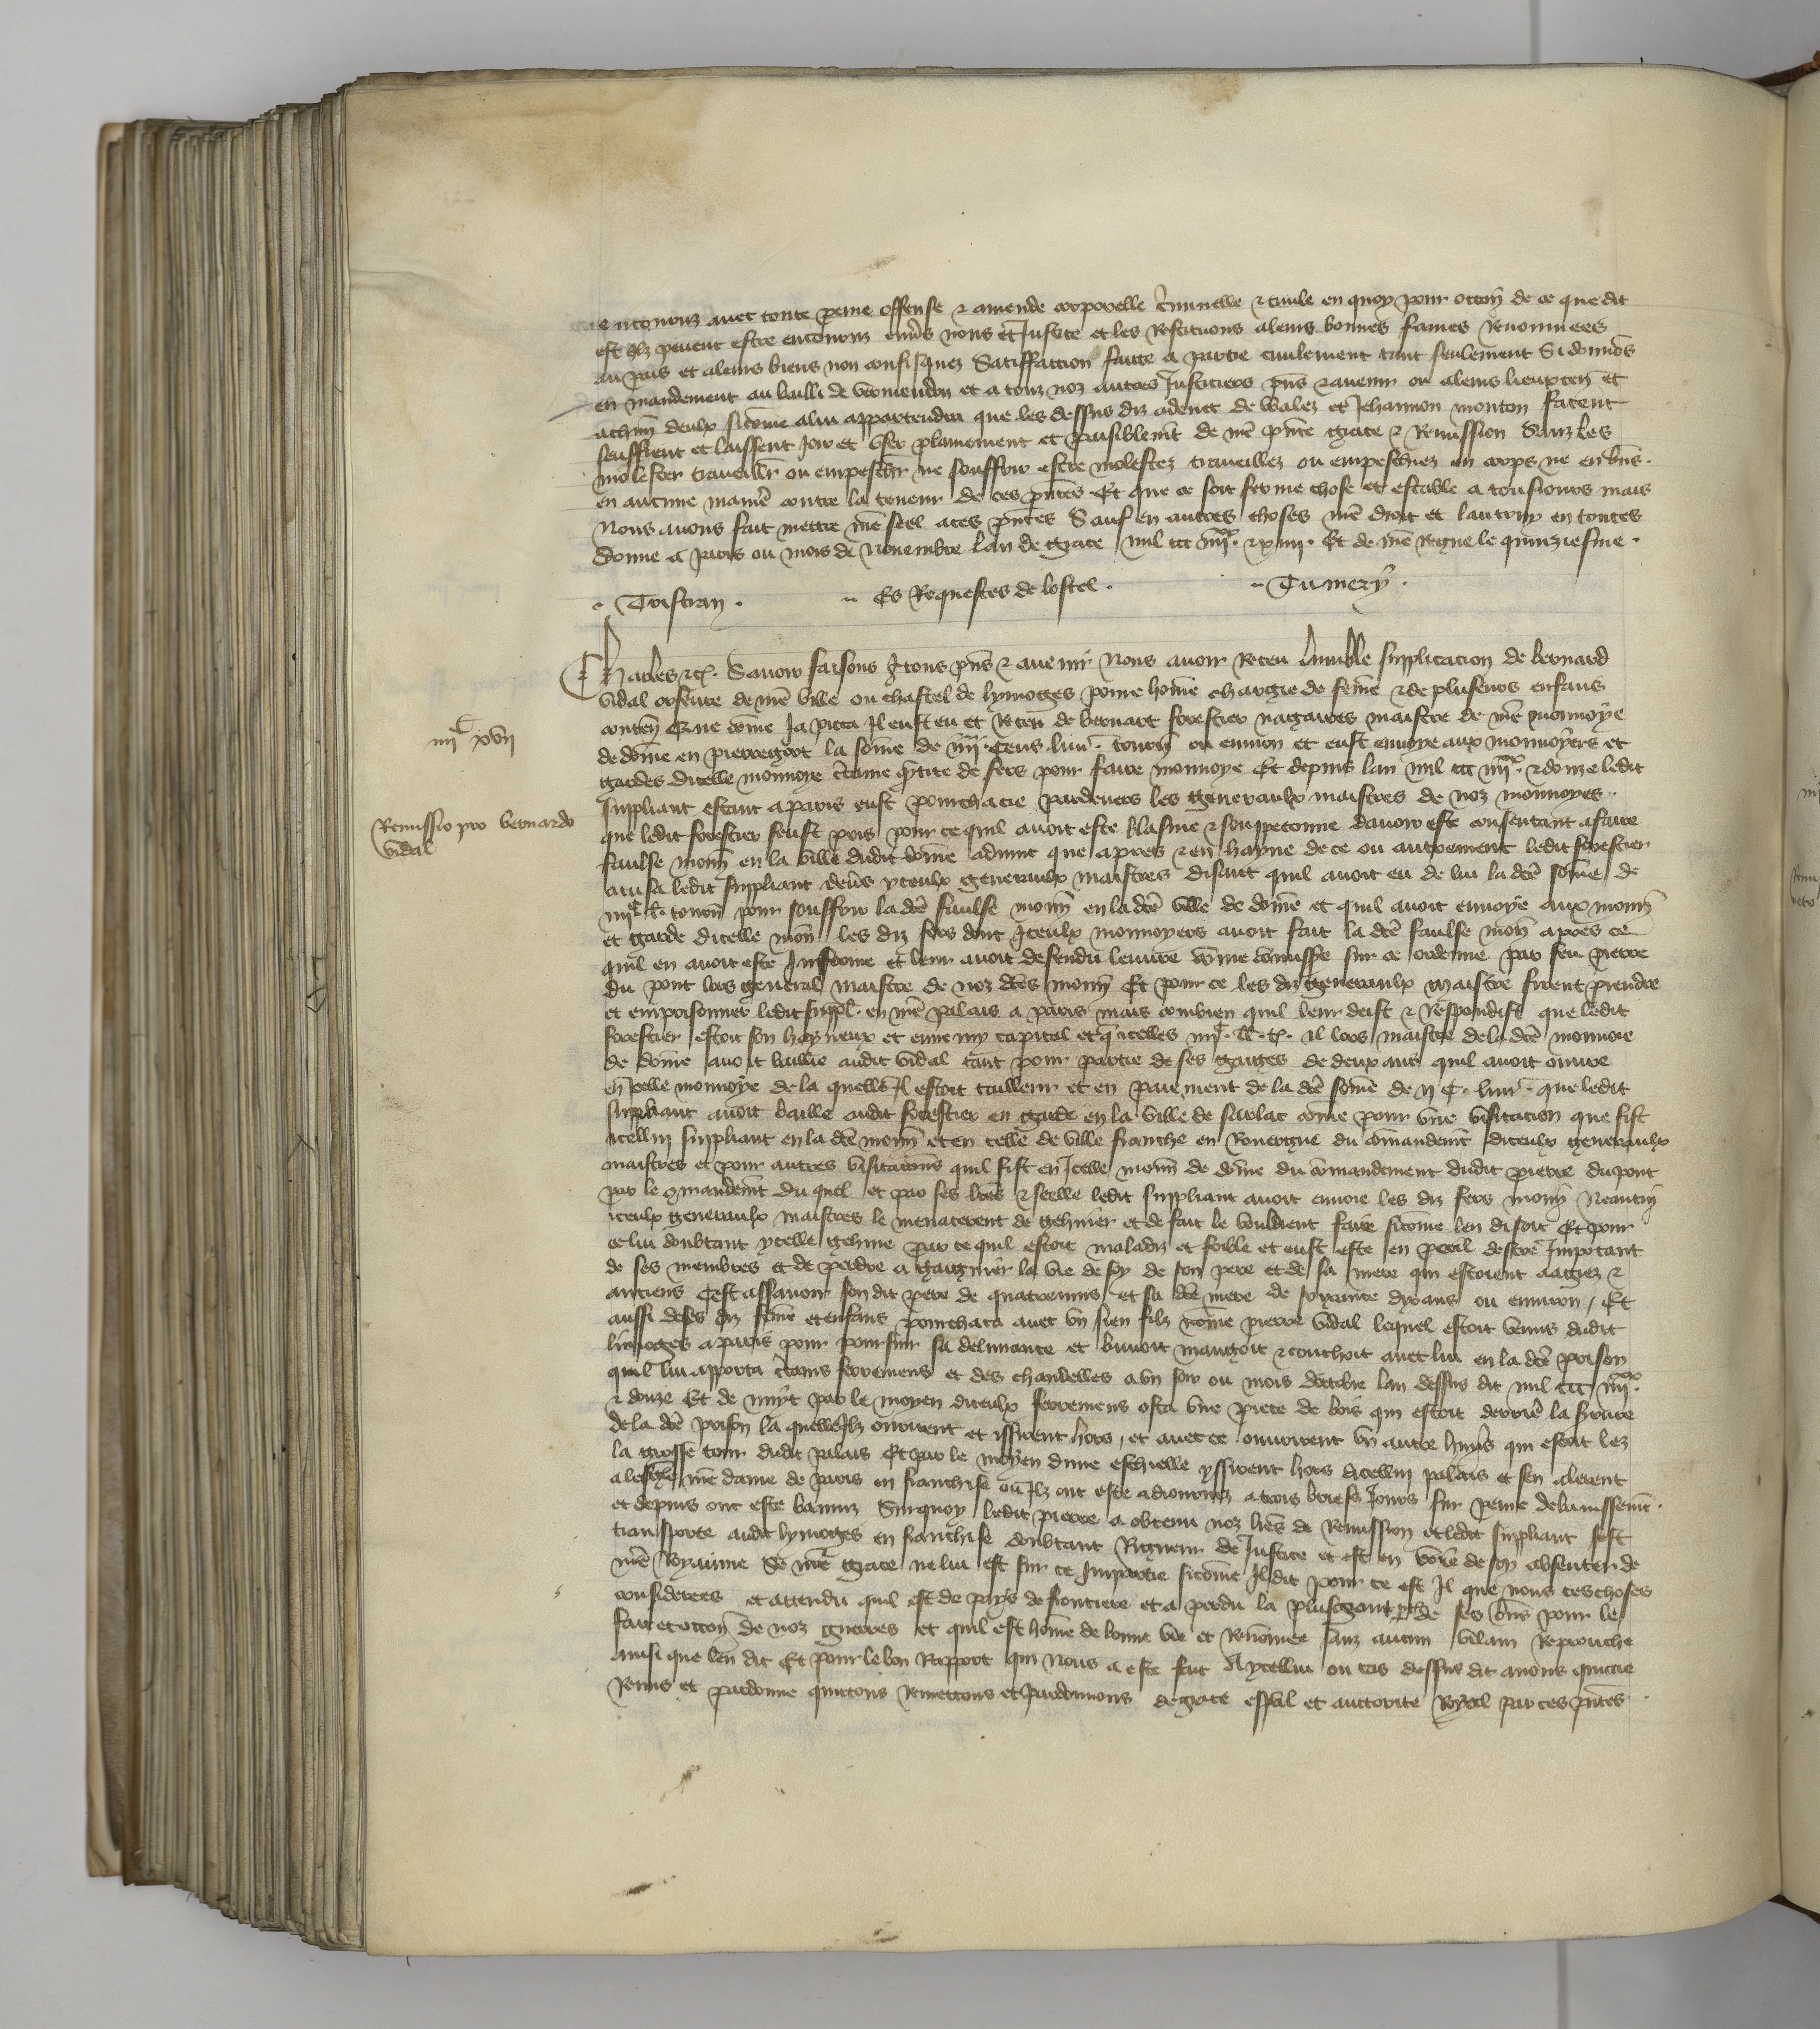 encouruz avec toute peine offense & amende corporelle criminelle & civile en quoy pour occon de ce que dit
est Ilz pevent estre encouruz envs nous et Justice et les restituons a leurs bonnes fames renommees
au pais et a leurs biens non confisquez Satiffaccion faicte a partie civilement tant seulement Si donnos
en mandement au bailli de vermendon et a touz noz autres Justiciers pns & avenir ou a leurs lieuxten et
a chun deulx sicome a lui appartendra que les dessus diz adenet de Walez et Jehannon monton facent
seuffrent et laissent Joir et user plainement et paisiblemt de nre pnte grace & Remission Sanz les
molester travaillr ou empeschr ne souffrir estre molestez travaillez ou empeschiez en corps ne en bns.
en aucune manie contre la teneur de ces pntes Et que ce soit ferme chose et estable a tousiours mais
Nous avons fait mettre nre seel a ces pntes Sauf en autres choses nre droit et lautruy en toutes
Donne a paris ou mois de Novembre lan de grace mil ccc iiiixx. & xiiii. Et de nre Regne le quinziesme.
Tristran. Es Requestes de lostel. Tumery.
Charles &c. Savoir faisons a tous pns & avenir Nous avoir receu lumble supplicacion de bernard
vidal orfevre de nre ville ou chastel de lymoges povre home chargie de feme & de pluseurs enfans
conten que come Ja pieca Il eust eu et receu de bernart forestier nagaires maistre de nre monnoye
de dome en pierregort la some de iiii. Cens livr. tourn ou environ et eust envoye aux monnoyers et
gardes dicelle monnoye ctaine qtite de fers pour faire monnoye Et depuis lan mil ccc iiiixx. & douze ledit
suppliant estant a paris eust pourchacie pardevers les generaulx maistres de noz monnoyes..
que ledit forestier feust pris pour ce quil avoit este blasme & souppeconne davoir este consentant a faire
faulse monn en la ville dudit dome advint que apres & en hayne de ce ou autrement ledit forestier
accusa ledit suppliant devs yceulx generaulx maistres disant quil avoit eu de lui la dce some de
iiiic l. tourn pour souffrir la dce faulse monn en la dce ville de dome et quil avoit envoye aux monn
et garde dicelle mon les diz fers dont Iceulx monnoyers avoit fait la dce faulse mon apres ce
quil en avoit este Informe et leur avoit defendu leuvre come comisse sur ce ordenne par feu pierre
du pont lors general maistre de noz dces monn Et pour ce les diz generaulx maistre firent prendre
et emprisonner ledit suppl. en nre palais a paris mais combien quil leur deist & respondist que ledit
forestier estoit son hayneux et ennemy capital et q icelles iiiic. ll. t. il lors maistre de la dce monnoie
de dome avoit baillie audit vidal tant pour partie de ses gaiges de deux ans quil avoit ouvre
en Icelle monnoye de la quelle Il estoit tailleur et en paiement de la dce some de ii C. livr. que ledit
suppliant avoit baille audit forestier en garde en la ville de sarlac come pour une visitacion que fist
icellui suppliant en la dce monn et en celle de ville franche en Rouergue du comandemt diceulx generaulx
maistres et pour autres visitacions quil fist en Icelle monn de dome du comandement dudit pierre dupont
par le comandemt du quel et par ses lres & seelle ledit suppliant avoit envoie les diz fers monn Neantm
iceulx generaulx maistres le menacerent de gehiner et de fait le vouldrent faire sicome len disoit Et pour
ce lui doubtant ycelle gehine par ce quil estoit maladiz et foible et eust este en peril destre Impotant
de ses membres et de perdre a gaignier la vie de soy de son pere et de sa mere qui estoient aagiez &
anciens Cest assavoir son dit pere de quatrevins et sa dce mere de soixante dix ans ou environ / Et
aussi de ses diz feme et enfans pourchaca avec un sien filz nome pierre vidal lequel estoit venus dudit
limoges a paris pour poursuir sa delivrance et buvoit mangoit & couchoit avec lui en la dce prison
quil lui apporta ctains ferremens et des chandelles a un soir ou mois doctobre lan dessus dit mil ccc iiiixx.
& douze Et de nuyt par le moyen diceulx ferremens osta une piece de bois qui estoit derrie la serrure
de la dce prison la quelle Ilz ouvrirent et issirent hors / et avec ce ouvrirent un autre huys qui estoit lez
la grosse tour dudit palais Et par le moyen dune eschielle yssirent hors dicellui palais et sen alerent
a leglise nre dame de paris en franchise ou Ilz ont este adiournez a trois briefs Jours sur peine de banissemt.
et depuis ont este banniz Surquoy ledit pierre a obtenu noz lres de Remission et ledit suppliant sest
transporte audit lymoges en franchise doubtant Rigueur de Justice et est en voie de soy absenter de
nre Royaume Se nre grace ne lui est sur ce Impartie sicome Il dit pour ce est Il que nous ces choses
considerees et attendu quil est de pays de frontiere et a perdu la plus grant pte de ses bns pour le
fait et occon de noz guerres et quil est home de bonne vie et Renomee sanz aucun vilain Reprouche
ainsi que len dit Et pour le bon Rapport qui nous a este fait A ycellui ou cas dessus dit avons quictie
Remis et pardonne quictons Remettons et pardonnons de grace esppal et auctorite Royal par ces pntes.
iiiic xvii
Remissio pro bernardo
vidal